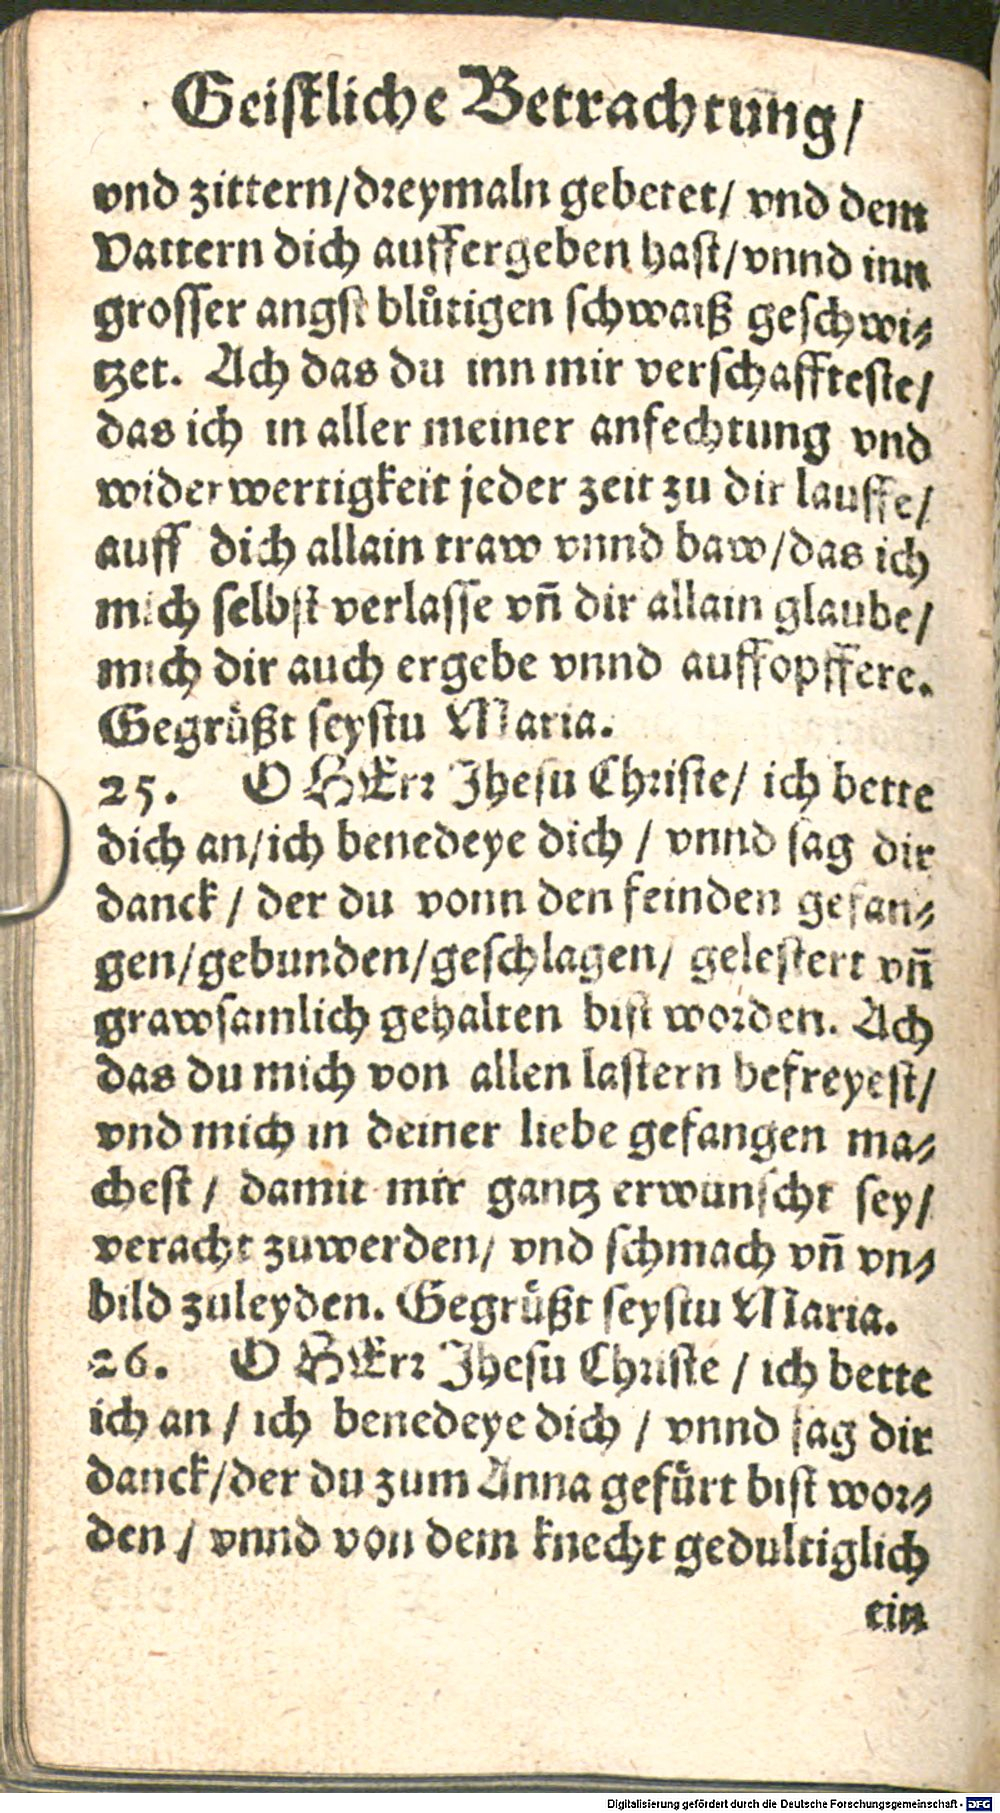 Geistliche Betrachtung/
vnd zittern/dreymaln gebetet/ vnd dem
Vattern dich auffergeben hast/vnnd inn
grosser angst blůtigen schwaiß geschwi-
tzet. Ach das du inn mir verschafftest e/
das ich in aller meiner anfechtung vnd
widerwertigkeit jeder zeit zu dir lauffe/
auff dich allain traw vnnd baw/das ich
mich selbst verlasse vñ dir allain glaube/
mich dir auch ergebe vnnd auffopffere.
Gegrüßt seystu Maria.
25. O HErr Jhesu Christe/ ich bette
dich an/ich benedeye dich / vnnd sag dir
danck / der du vonn den feinden gefan-
gen/gebunden/geschlagen/ gelestert vñ
grawsamlich gehalten bist worden. Ach
das du mich von allen lastern befreyest/
vnd mich in deiner liebe gefangen ma-
chest / damit mir gantz erwünscht sey/
veracht zuwerden/ vnd schmach vñ vn-
bild zuleyden. Gegrüßt seystu Maria.
26. O HErr Jhesu Christe / ich bette
ich an / ich benedeye dich / vnnd sag dir
danck/der du zum Anna gefürt bist wor-
den / vnnd von dem knecht gedultiglich
ein
Digitalisierung gefördert durch die Deutsche Forschungsgemeinschaft - DFG